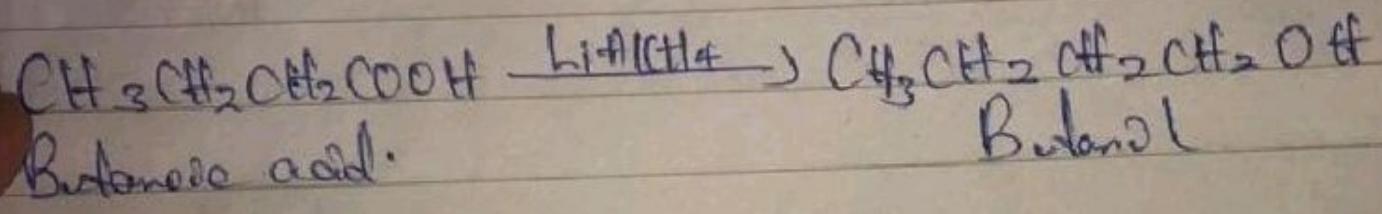 CH₃CH₂CH₂COOH LiAlCH₄ → CH₃CH₂CH₂CH₂OH
Butanoic acid. Butanol